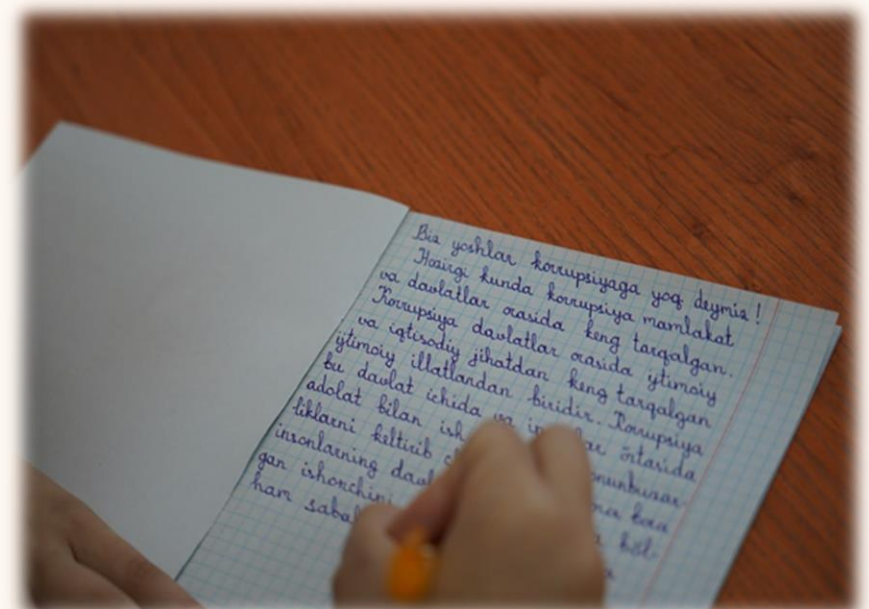 Biz yoshlar korrupsiyaga yoq deymiz!
Hozirgi kunda korrupsiya mamlakat
va davlatlar orasida keng tarqalgan.
Korrupsiya davlatlar orasida ijtimoiy
va iqtisodiy jihatdan keng tarqalgan
ijtimoiy illatlardan biridir. Korrupsiya
bu davlat ichida va örtasida
adolat bilan
liklarni keltirib
insonlarning
gan ishonchini
ham